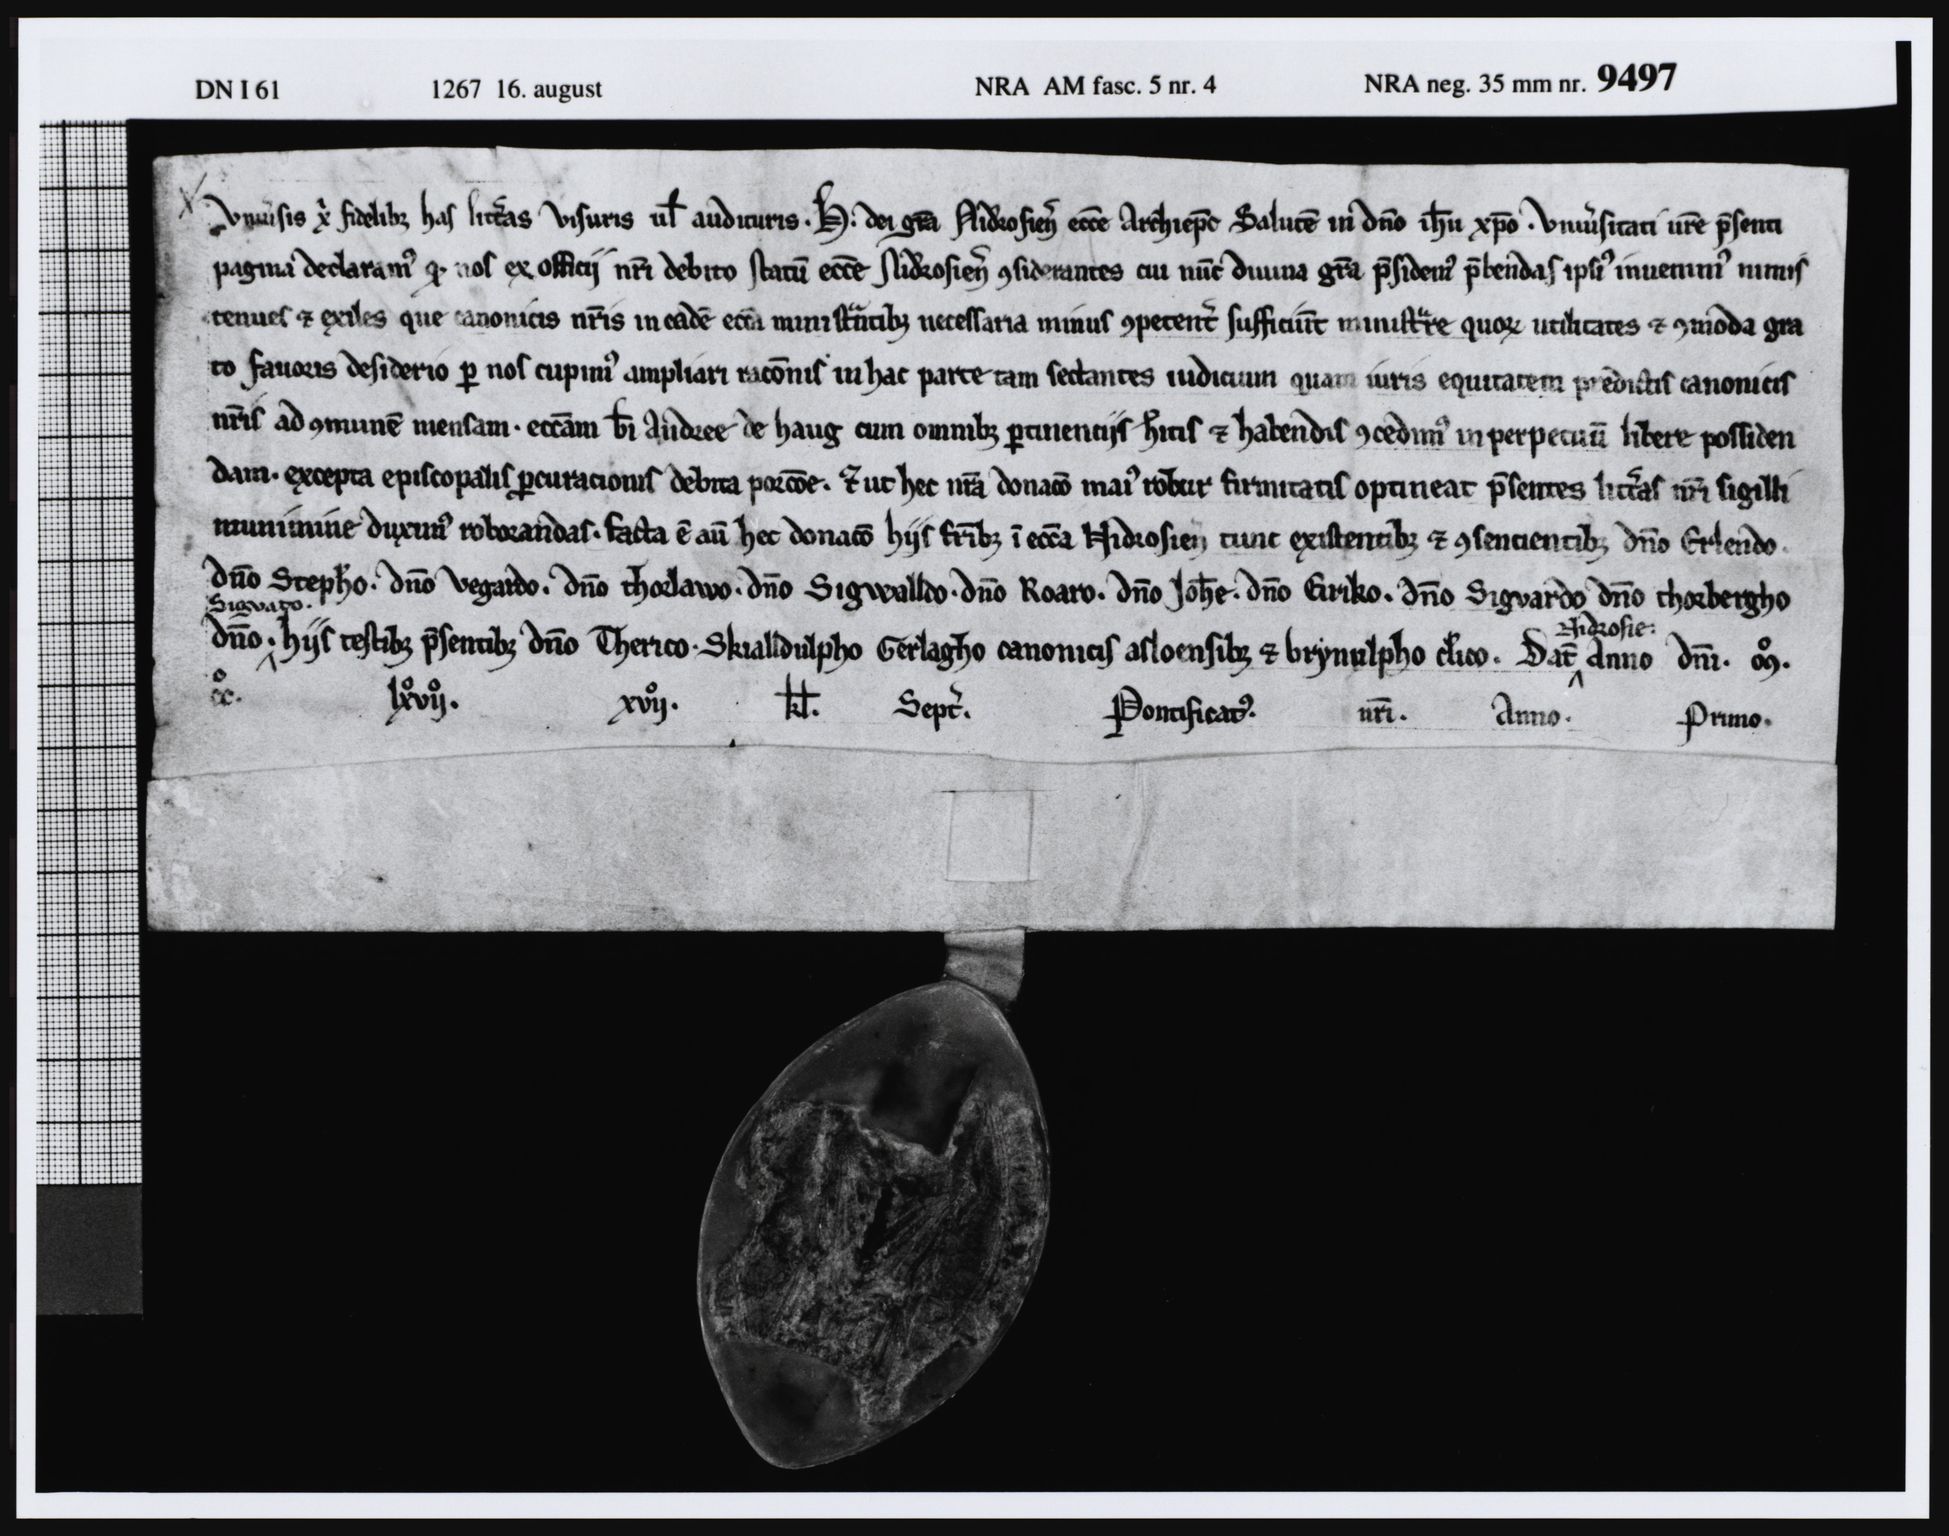 DN I 61 1267 16. august NRA AM fasc. 5 nr. 4 NRA neg. 35 mm nr. 9497
Vniu͛sis x̓ fidelibꝫ has litt͛as visuris ul̵ audituris. H. dei gr̄a Nidrosien̄ ecc̄e Archiep̄c Salutē in dn̄o ih̄u xp̄o. Vniu͛sitati ur̄e p̄senti
pagina declaramꝰ ꝙ nos ex officij nr̄i debito statū ecc̄e Nidrosien̄ ꝯsiderantes cui nūc diuina gr̄a p̄sidemꝰ p̄bendas ipsiꝰ inuenimꝰ nimis
tenues ⁊ exiles que canonicis nr̄is in eadē ecc̄a ministᷓntibꝫ necessaria minus ꝯpetent͛ sufficiūt ministᷓre quoꝝ utilitates ⁊ ꝯmoda gra
to fauoris desiderio ꝑ nos cupimꝰ ampliari rac̄onis in hac parte tam sectantes iudicium quam iuris equitatem predictis canonicis
nr̄is ad ꝯmunē mensam. ecc̄am b̄i Andree de haug cum omnibꝫ ꝑtinencijs h̄itis ⁊ habendis ꝯcedimꝰ in perpetuū libere possiden
dam. excepta episcopalis ꝓcuracionis debita porc̄oe. ⁊ ut hec nr̄a donac̄o maiꝰ robur firmitatis optineat p̄sentes litt͛as nr̄i sigilli
munimine duximꝰ roborandas. facta ē aū hec donac̄o hijs fr̄ibꝫ ī ecc̄a Nidrosien̄ tunc existentibꝫ ⁊ ꝯsencientibꝫ dn̄o Erlendo.
dn̄o Steph̄o. dn̄o vegardo. dn̄o thorlawo. dn̄o Sigwalldo. dn̄o Roaro. dn̄o Joh̄e. dn̄o Eiriko. dn̄o Sigvardo dn̄o thorbergho
Sigvato.
dn̄o. hijs testibꝫ p̄sentibꝫ dn̄o Therico. Skialldulpho Gerlagho canonicis asloensibꝫ ⁊ brynulpho cl̄ico. Dat̄ Anno dn̄i. ͦm.
Nidrosie.
ͦcc. lxͦvij. xvij. kl̵. Sept͛. Pontificatꝰ. nr̄i. Anno. Primo.